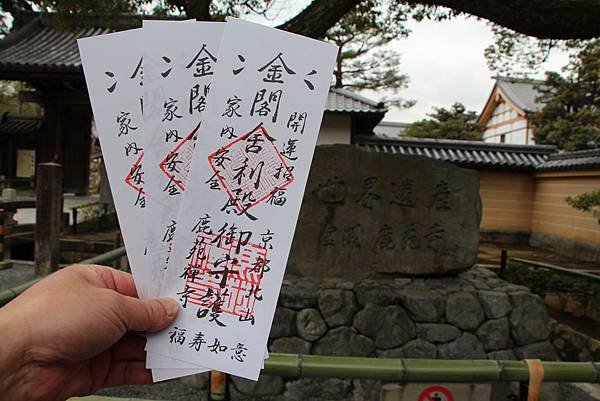 金閣舎利殿御守護
開運招福
家内安全
京都北山
鹿苑禅寺
福寿如意
金閣
家内安全
鹿苑禅寺
家内安全
世界遺産
金閣 鹿苑寺